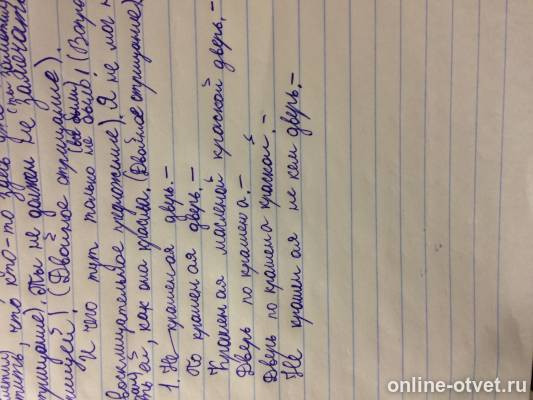 тить, что кто-то здесь уже
рицание). Ты не должен не замечать
ищей! (Двойное отрицание).
(всё было)
И чего тут только не было! (Вопро
восклицательное предложение) Я не мог н
ть ей, как она красива. (Двойное отрицание)
1. Не крашеная дверь.-
По крашен ая дверь.-
Крашен ая масленой краской дверь.-
Дверь по крашен а.-
Дверь по крашена краской.-
Не крашен ая не кем дверь.-
online-otvet.ru